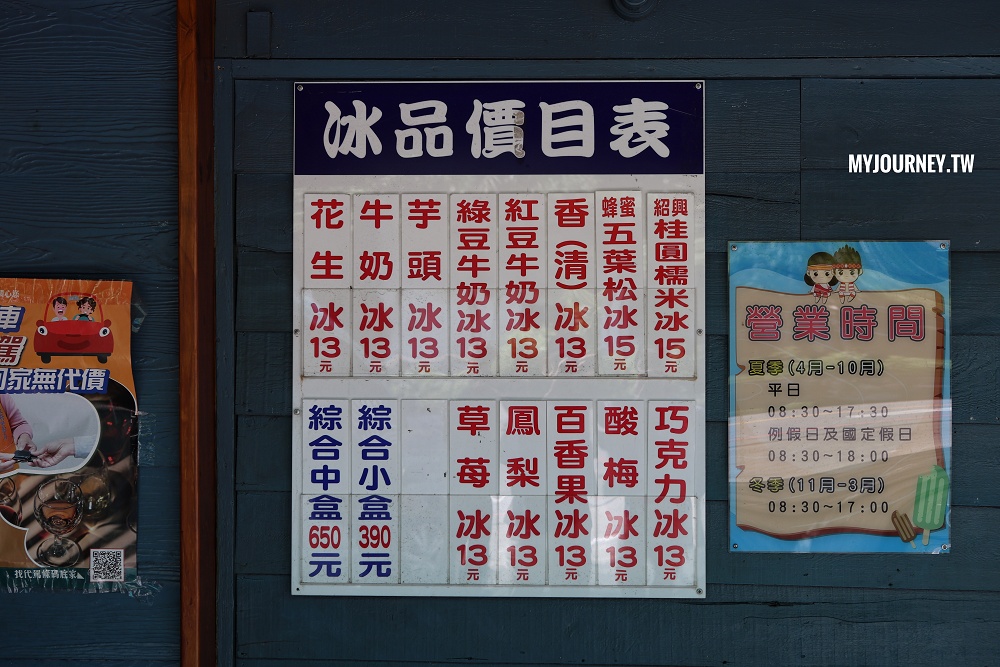 冰品價目表
紹興桂圓糯米冰15元
蜂蜜五葉松冰15元
香(清)冰13元
紅豆牛奶冰13元
綠豆牛奶冰13元
芋頭冰13元
牛奶冰13元
花生冰13元
巧克力冰13元
酸梅冰13元
百香果冰13元
鳳梨冰13元
草莓冰13元
綜合小盒390元
綜合中盒650元
MYJOURNEY.TW
營業時間
夏季(4月-10月)
平日
08:30~17:30
例假日及國定假日
08:30~18:00
冬季(11月-3月)
08:30~17:00
車
駕
家無代價